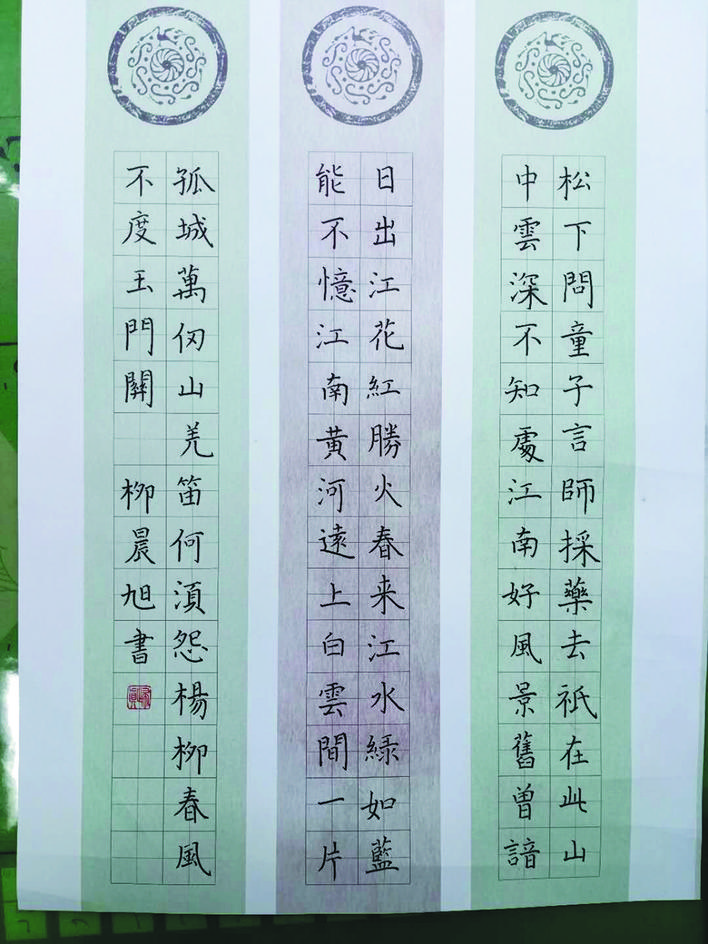 松下問童子言師採藥去祇在此山
中雲深不知處江南好風景舊曾諳
日出江花紅勝火春来江水緑如藍
能不憶江南黃河遠上白雲間一片
孤城萬仞山羌笛何須怨楊柳春風
不度玉門關 柳晨旭書